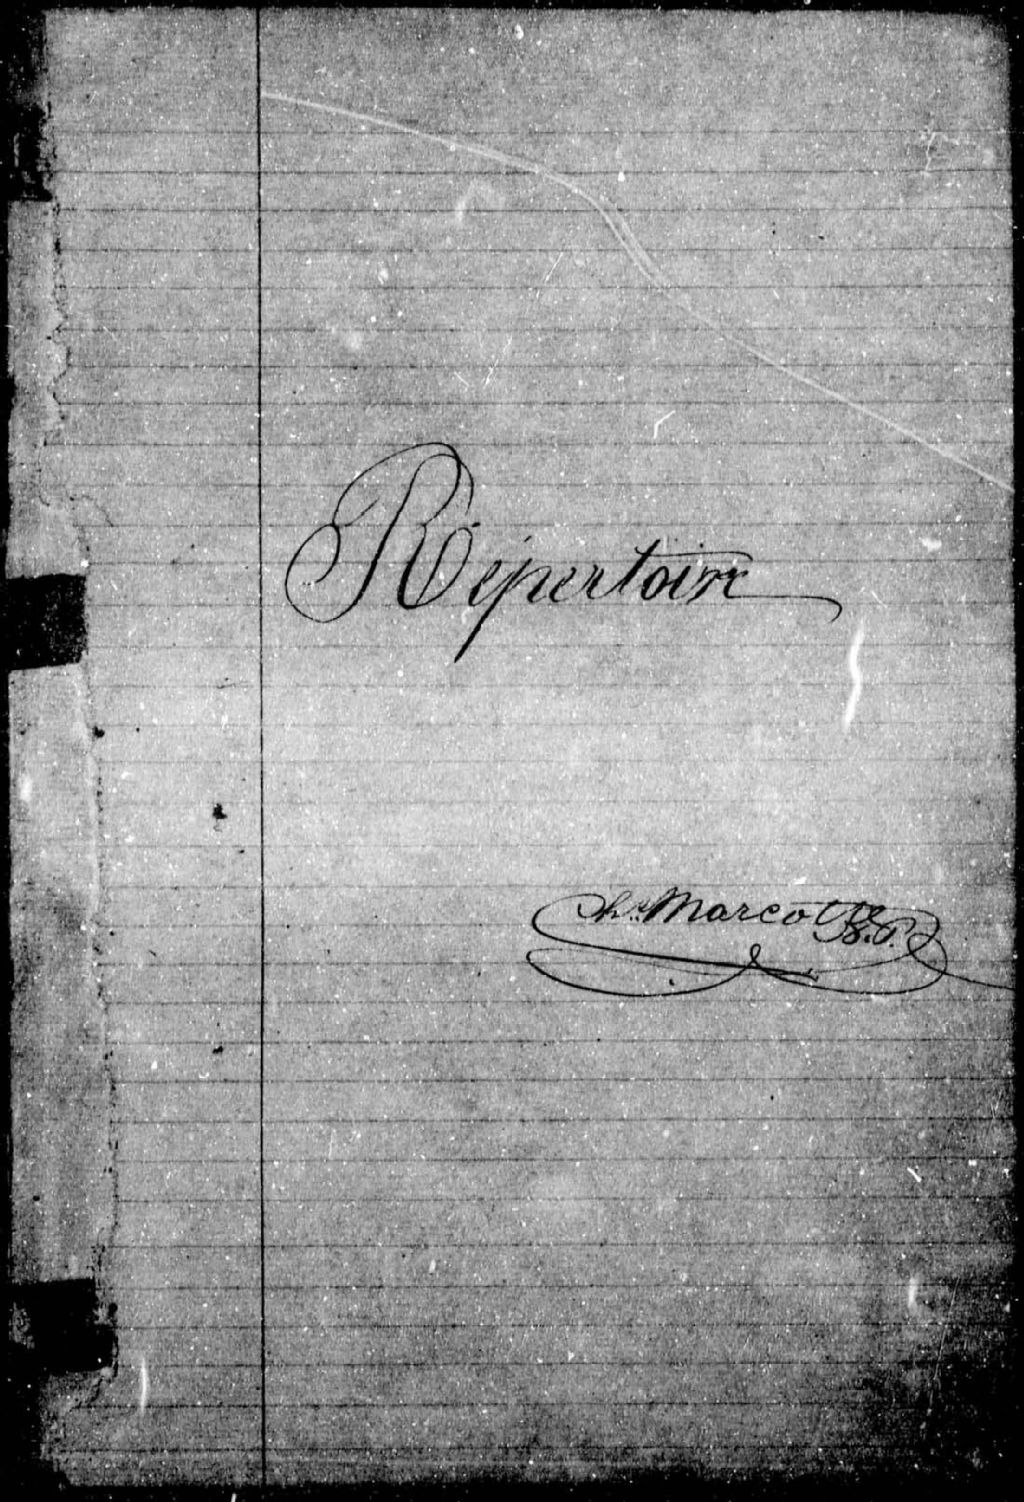 Répertoire
Chs. Marcotte
N.P.